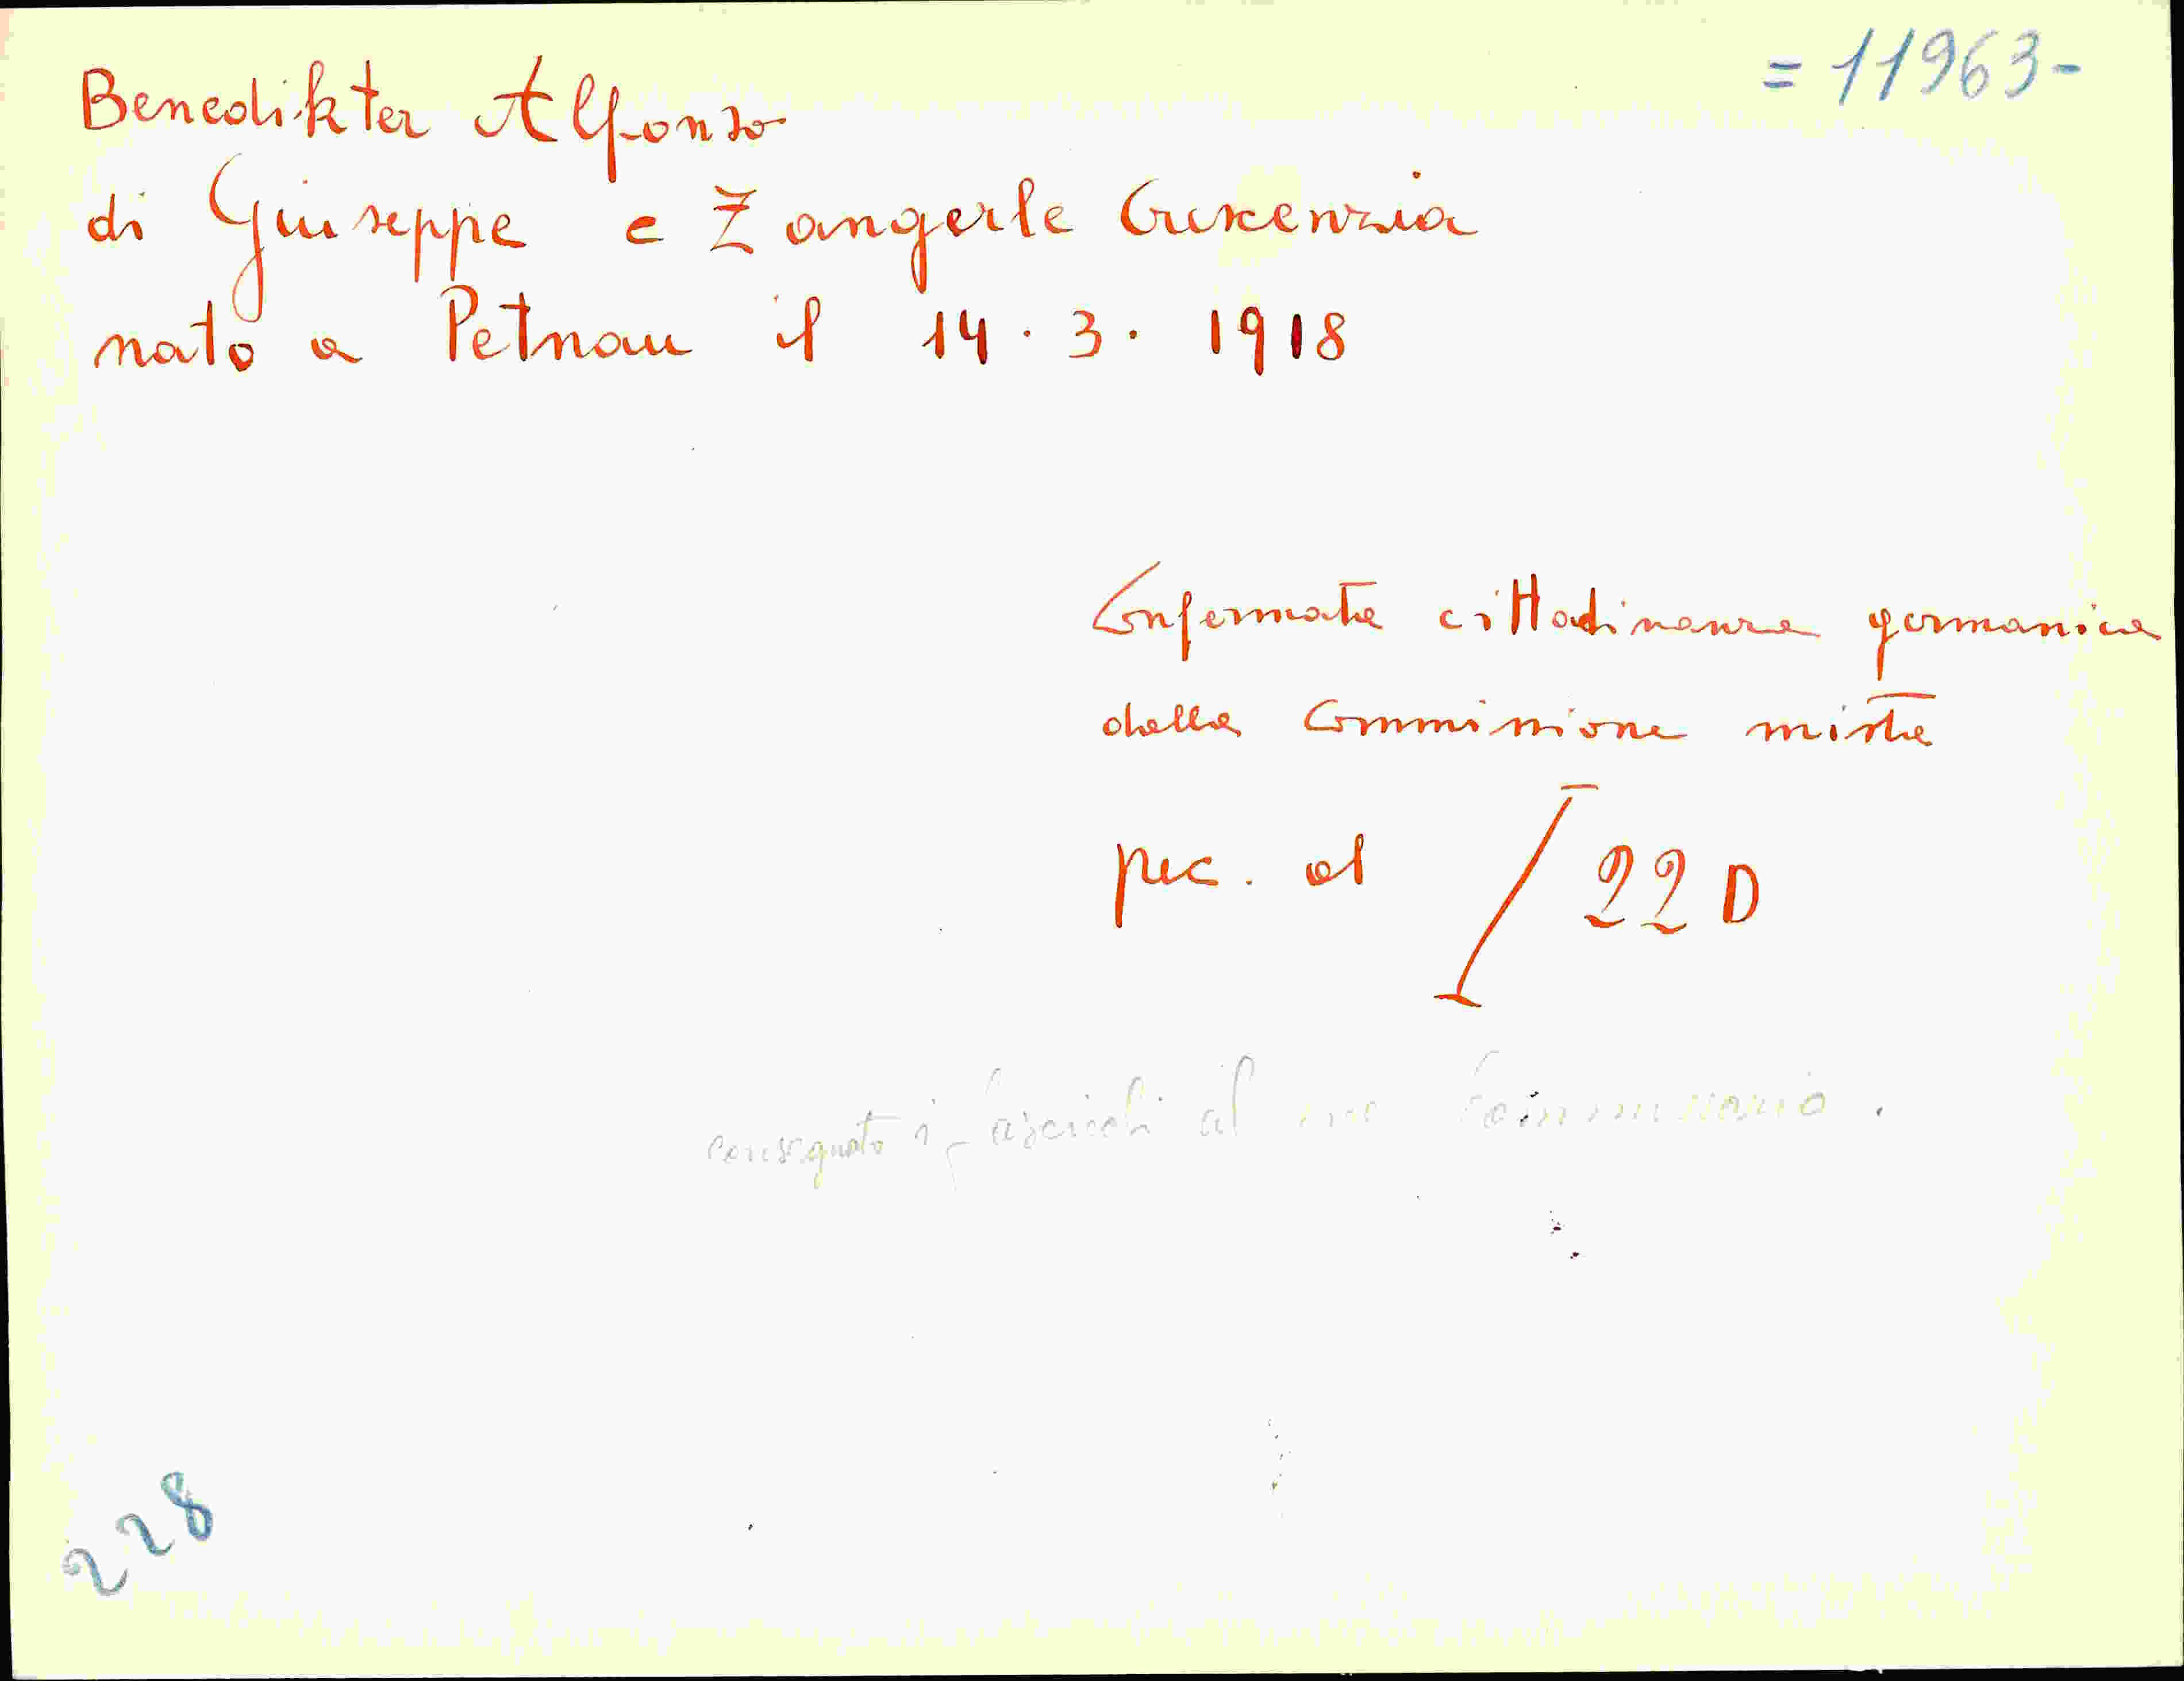 = 11963 -
Benedikter Alfonso
di Giuseppe e Zangerle Crescenzia
nato a Petnau il 14. 3. 1918
Confermata cittadinanza germanica
dalla Commissione mista
prec. al / 22 D
consegnato i fascicoli al Commissario.
228